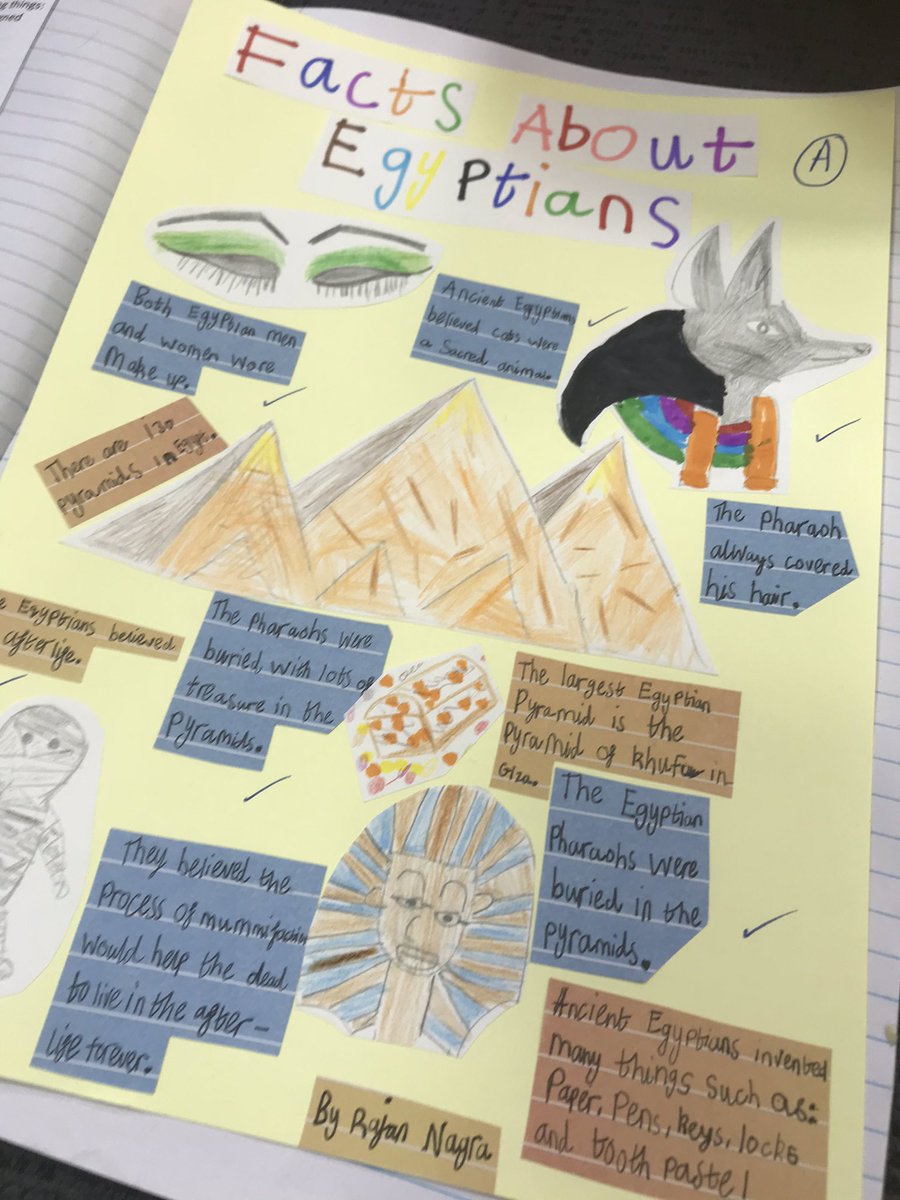 g things:
ened
Facts About
Egyptians
A
Both Egyptian men
and women wore
make up.
Ancient Egyptians
believed cats were
a Sacred animal.
There are 130
pyramids in Egypt.
The Pharaoh
always covered
his hair.
e Egyptians believed
afterlife.
The Pharaohs were
buried, with lots of
treasure in the
Pyramids.
The largest Egyptian
Pyramid is the
Pyramid of khufu in
Giza.
The Egyptian
Pharaohs were
buried in the
pyramids.
They believed the
Process of mummifaction
would help the dead
to live in the after-
life forever.
Ancient Egyptians invented
many things such as:
Paper, Pens, keys, locks
and tooth paste!
By Rajan Nagra